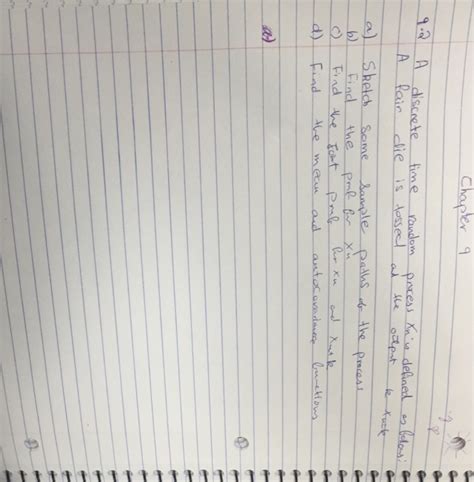 Chapter 9
9.2 A discrete time random process Xn is defined as follows
A fair die is tossed and the output k
a) Sketch some sample paths of the process
b) Find the pmf for Xn
c) Find the joint pmf for Xn and Xn+k
d) Find the mean and autocovariance functions
a)